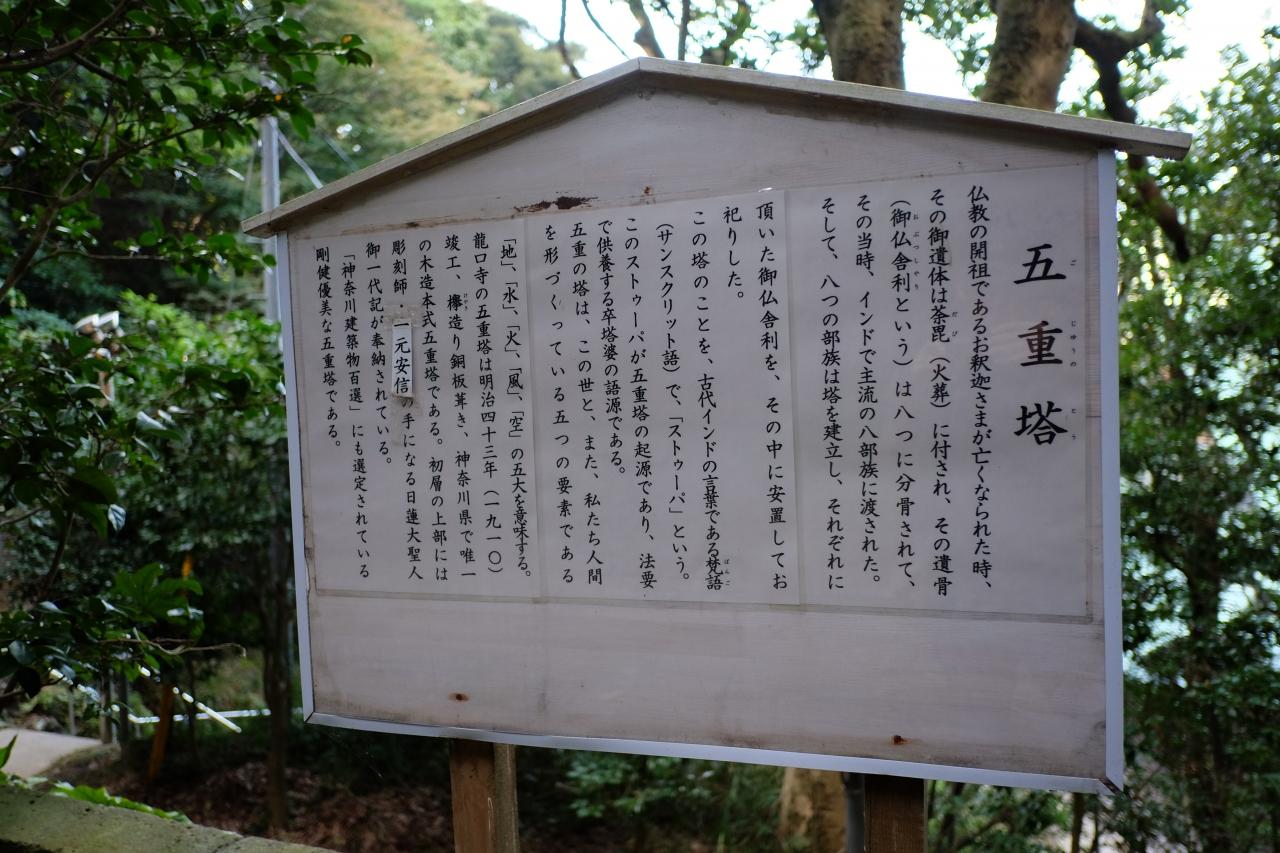 五重塔
仏教の開祖であるお釈迦さまが亡くなられた時、
その御遺体は荼毘（火葬）に付され、その遺骨
（御仏舎利という）は八つに分骨されて、
その当時、インドで主流の八部族に渡された。
そして、八つの部族は塔を建立し、それぞれに
頂いた御仏舎利を、その中に安置してお
祀りした。
この塔のことを、古代インドの言葉である梵語
（サンスクリット語）で、「ストゥーパ」という。
このストゥーパが五重塔の起源であり、法要
で供養する卒塔婆の語源である。
五重の塔は、この世と、また、私たち人間
を形づくっている五つの要素である
「地」、「水」、「火」、「風」、「空」の五大を意味する。
龍口寺の五重塔は明治四十三年（一九一〇）
竣工、欅造り銅板葺き、神奈川県で唯一
の木造本式五重塔である。初層の上部には
彫刻師・一元安信 手になる日蓮大聖人
御一代記が奉納されている。
「神奈川建築物百選」にも選定されている
剛健優美な五重塔である。